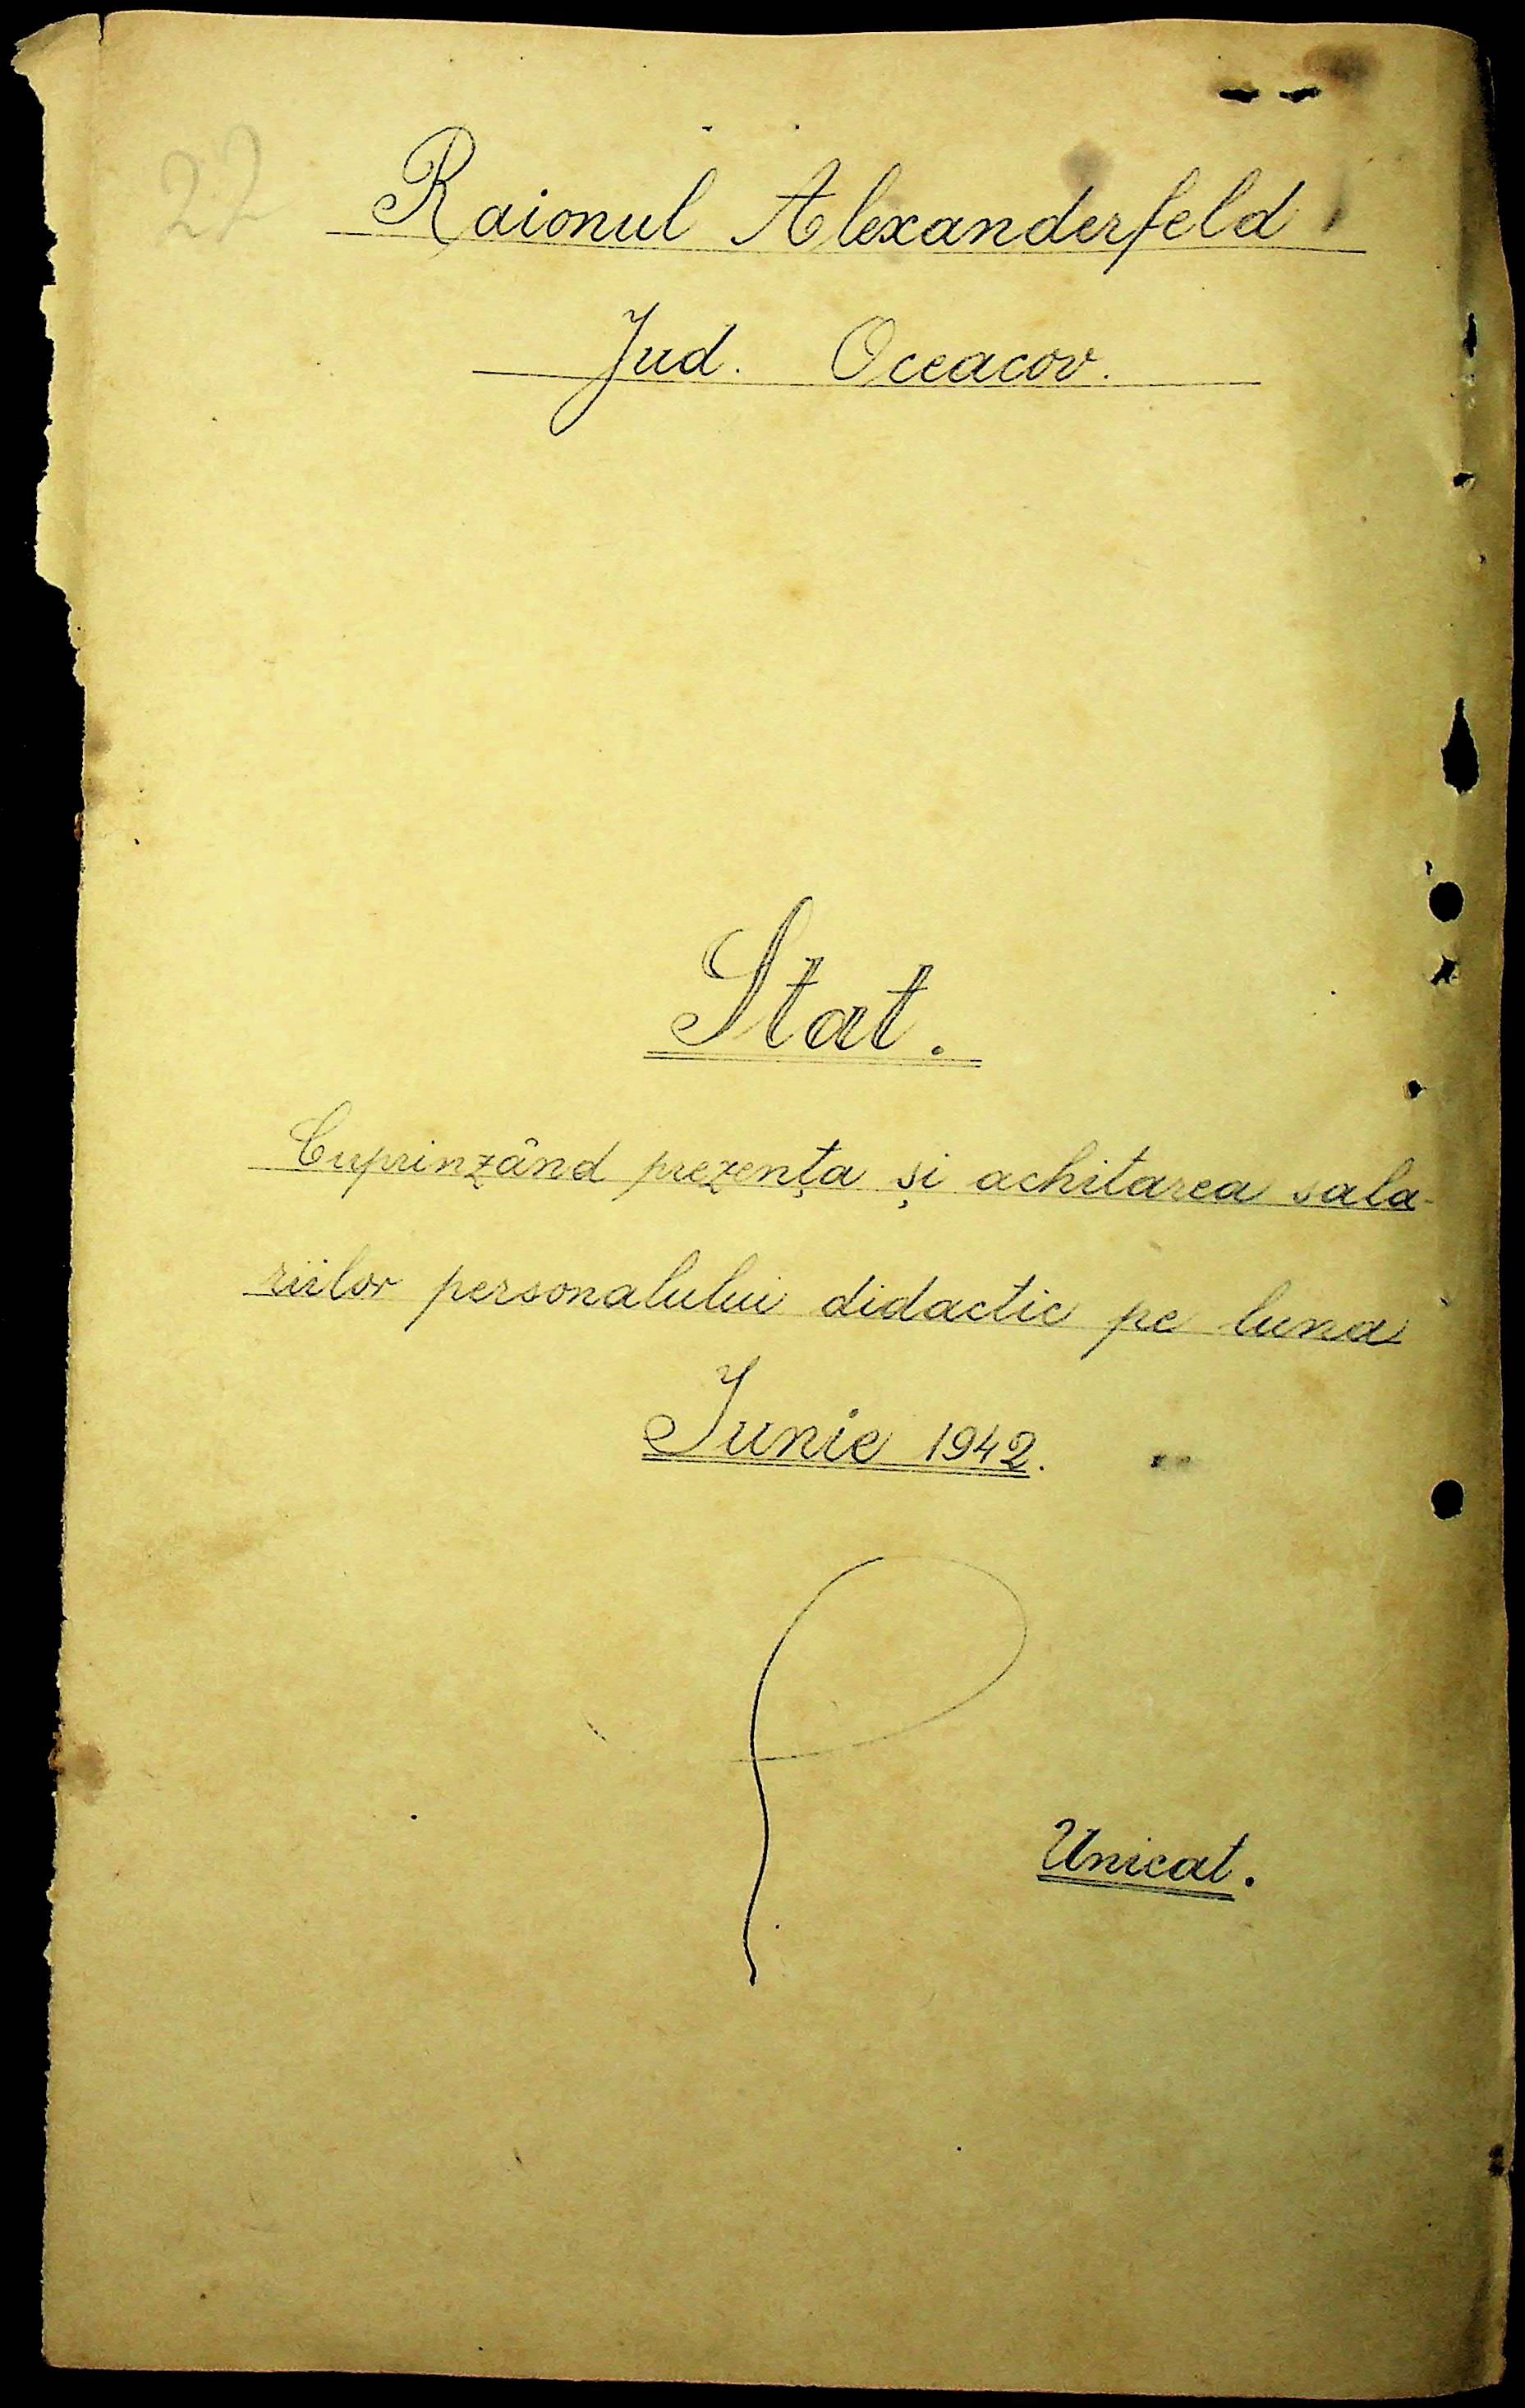 22
Raionul Alexanderfeld
Jud. Oceacov.
Stat.
Cuprinzând prezența și achitarea sala-
riilor personalului didactic pe luna
Junie 1942.
Unicat.